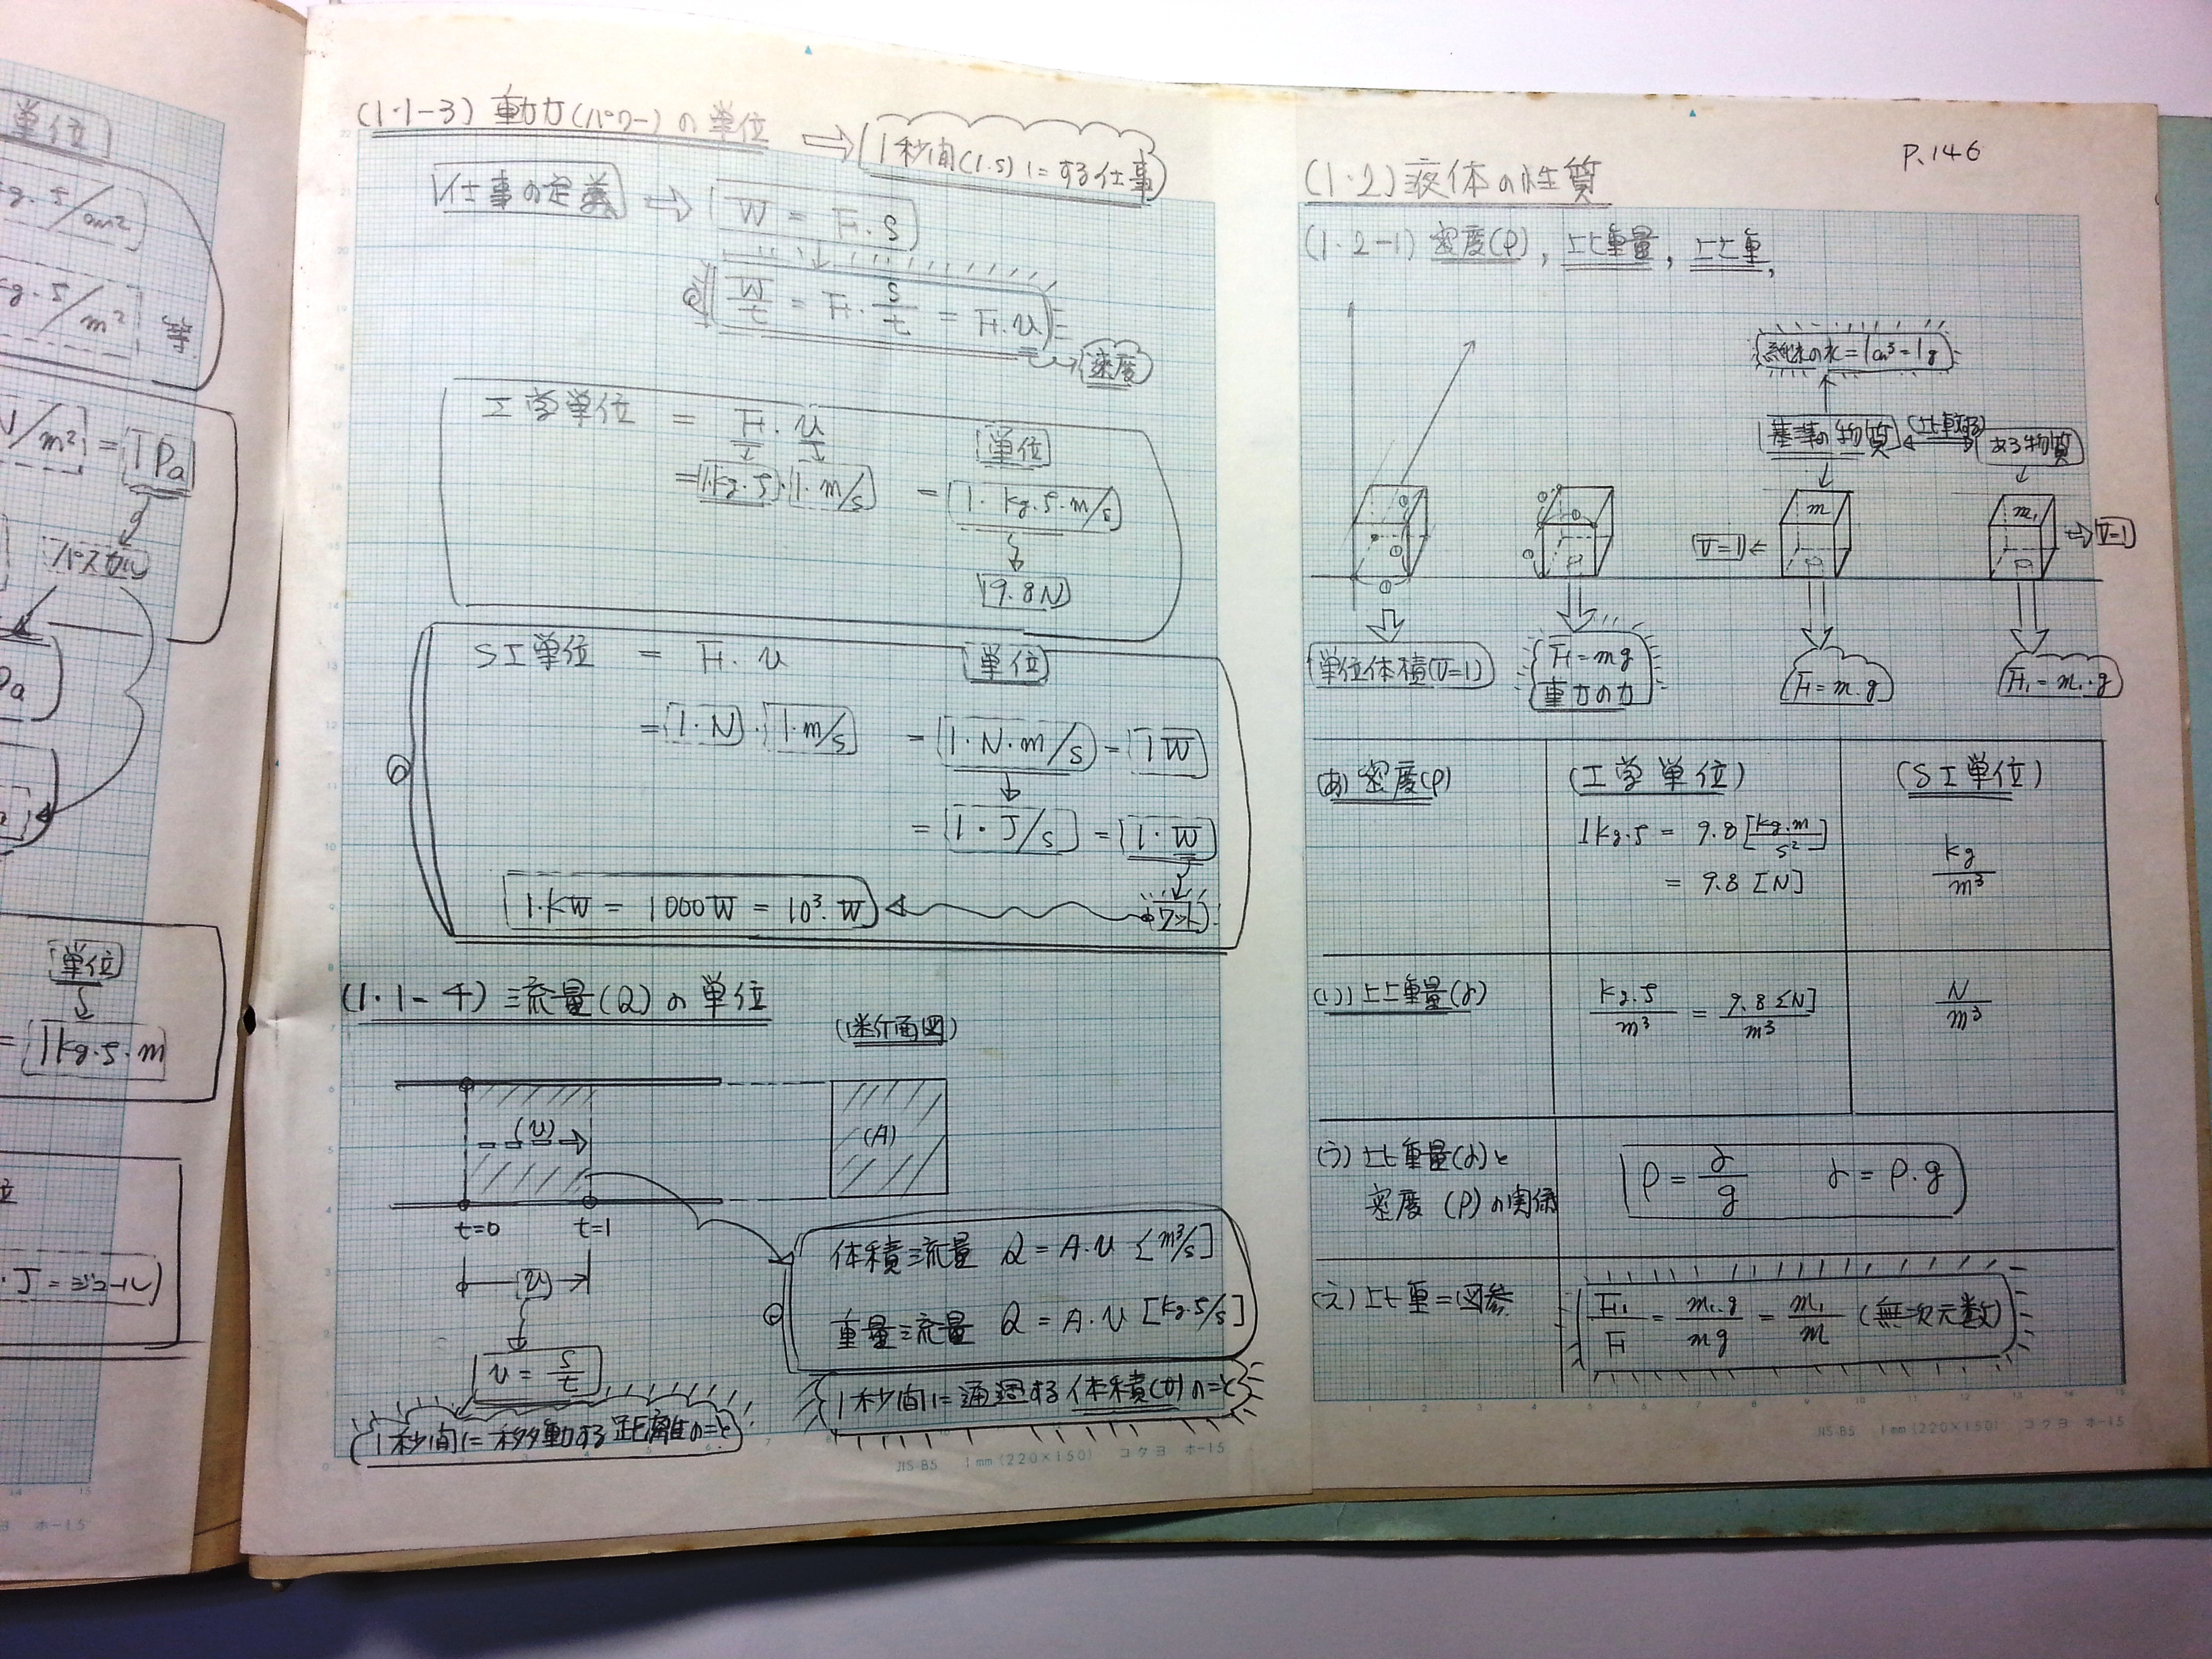 単位
kg・f/cm²
kg・f/m²
等
N/m² = 1Pa
パスカル
Pa
単位
= 1kg・f・m
・J=ジュール
(1・1-3) 動力(パワー)の単位
1秒間(1.s)にする仕事
仕事の定義
W = F・S
W/t = F・S/t = F・v
速度
工学単位 = F・v
単位
= 1・kg・f・1・m/s = 1・kg・f・m/s
9.8N
SI単位 = F・v
単位
= 1・N・1・m/s = 1・N・m/s = 1W
= 1・J/s = 1・W
1・kW = 1000W = 10³・W
ワット
(1・1-4) 流量(Q)の単位
(断面図)
(v)
(A)
t=0 t=1
(v)
v = S/t
1秒間に移動する距離のこと
体積流量 Q = A・v [m³/s]
重量流量 Q = A・v [kg・f/s]
1秒間に通過する体積(力)のこと
JIS B5 1mm(220×150) コクヨ ホ-15
P.146
(1・2)液体の性質
(1・2-1) 密度(ρ), 比重量, 比重,
純粋の水=1cm³=1g
基準の物質
比較する
ある物質
m
m₁
V=1
V=1
単位体積(V=1)
F=mg
重力の力
F=m・g
F₁=m₁・g
(あ) 密度(ρ)
(工学単位)
(SI単位)
1kg・f = 9.8[kg・m/s²]
= 9.8 [N]
kg/m³
(い) 比重量(γ)
kg・f/m³ = 9.8[N]/m³
N/m³
(う) 比重量(γ)と
密度(ρ)の関係
ρ = γ/g γ = ρ・g
(え) 比重=図参
F₁/F = m₁・g/mg = m₁/m (無次元数)
JIS B5 1mm(220×150) コクヨ ホ-15
ホ-15